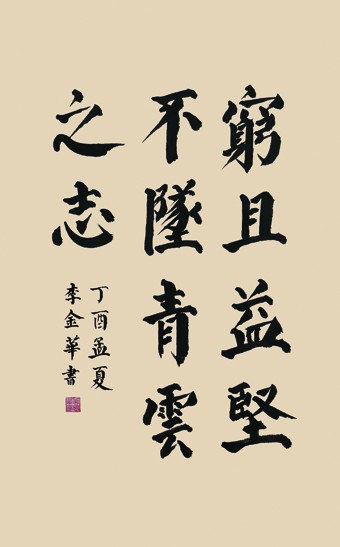 窮且益堅
不墜青雲
之志
丁酉孟夏
李金華書